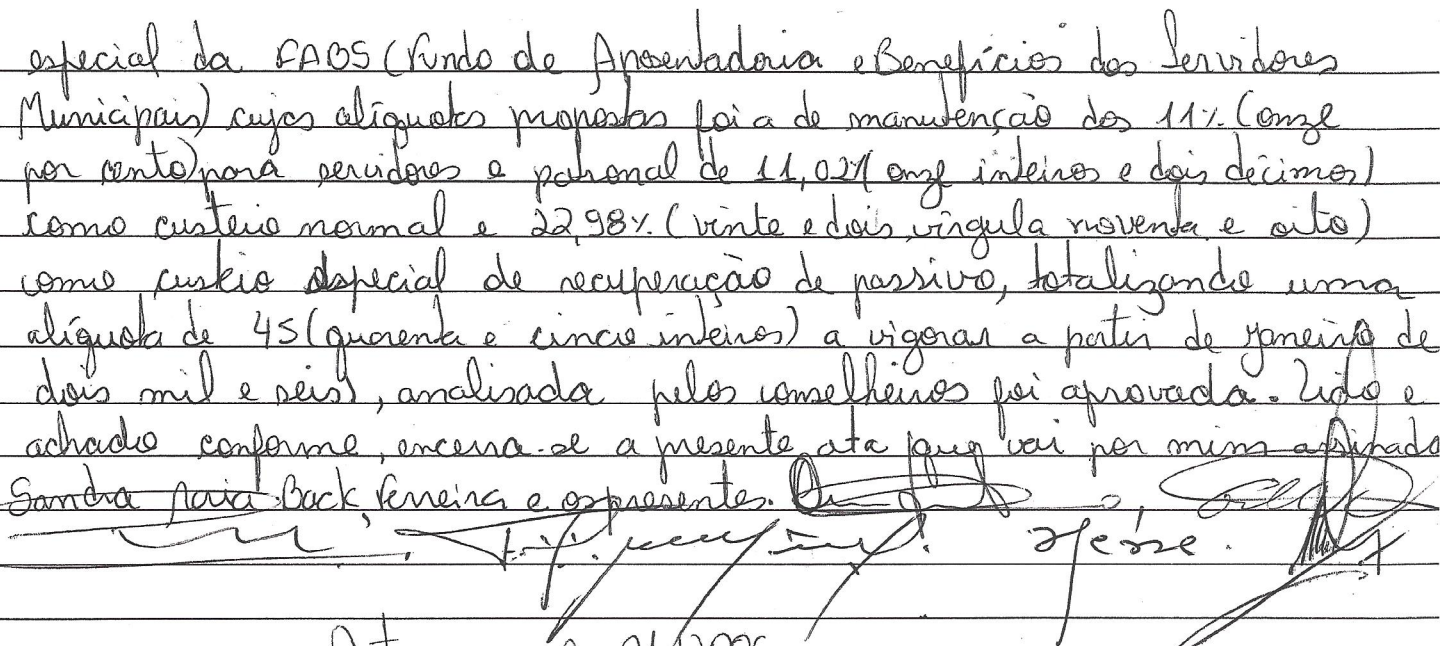 especial da FABS (Fundo de Aposentadoria e Benefícios dos Servidores
Municipais) cujas alíquotas propostas foi a de manutenção dos 11% (onze
por cento) para servidores e patronal de 11,02% (onze inteiros e dois décimos)
como custeio normal e 22,98% (vinte e dois vírgula noventa e oito)
como custeio especial de recuperação de passivo, totalizando uma
alíquota de 45 (quarenta e cinco inteiros) a vigorar a partir de janeiro de
dois mil e seis), analisada pelos conselheiros foi aprovada. Lido e
achado conforme, encerra-se a presente ata que vai por mim assinado
Sandra Back Ferreira e os presentes.